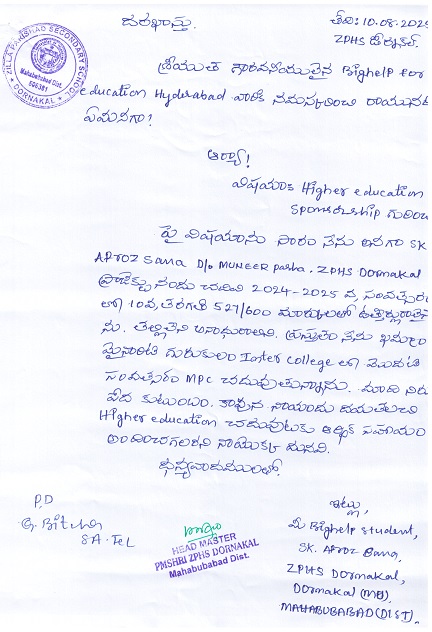 దరఖాస్తు.
తేది: 10.08.2025
ZPHS డోర్నకల్.
ZILLA PARISHAD SECONDARY SCHOOL
Mahabubabad Dist.
506381
* DORNAKAL *
శ్రీయుత గౌరవనీయులైన Bighelp for
education Hyderabad వారికి నమస్కరించి రాయునది
ఏమనగా!
ఆర్యా!
విషయం Higher education
Sponsorship గురించి
పై విషయాను సారం నేను అనగా SK
Afroz Sana D/o MUNEER Pasha. ZPHS Dornakal
నందు చదివి 2024-2025 వ సంవత్సరం
లో 10వ తరగతి 527/600 మార్కులతో ఉత్తీర్ణురాలైనా
ను. తల్లిలేని అనాధురాలిని. ప్రస్తుతం నేను ఖమ్మం
మైనారిటి గురుకులం Inter College లో మొదటి
సంవత్సరం MPC చదువుతున్నాను. మాది నిరు
పేద కుటుంబం. కావున నాయందు దయతలచి
Higher education చదువుటకు ఆర్థిక సహాయం
అందించగలరని నాయొక్క మనవి.
ధన్యవాదములతో.
P.D
SA. Tel
HEAD MASTER
PMSHRI ZPHS DORNAKAL
Mahabubabad Dist.
ఇట్లు,
మీ Bighelp student,
SK. Afroz Sana,
ZPHS Dornakal,
Dornakal (Md)
MAHABUBABAD (DIST).